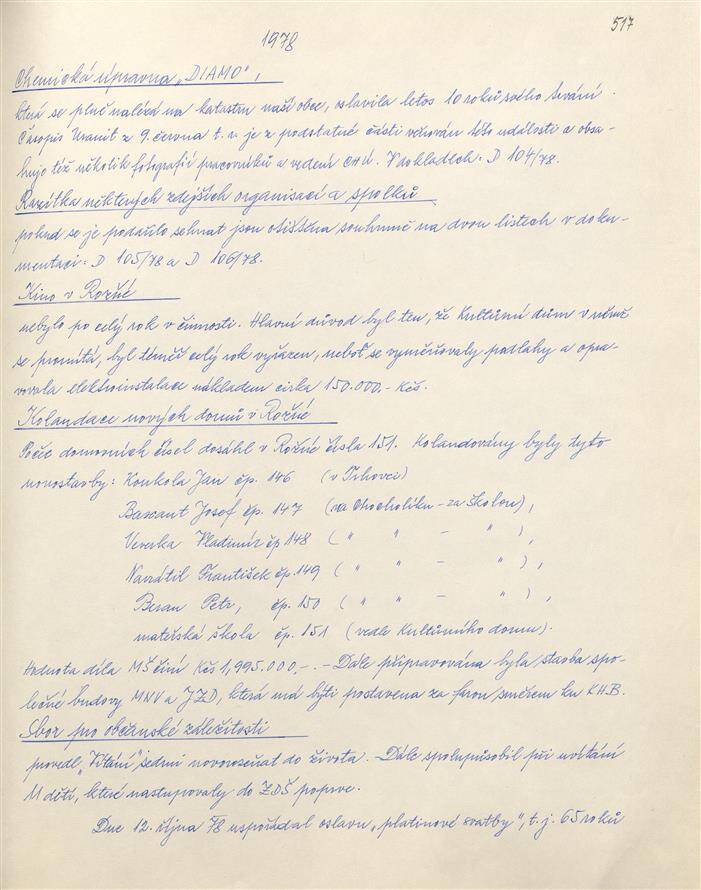 517
1978
Chemická úpravna „DIAMO",
která se plně nalézá na katastru naší obce, oslavila letos 10 roků svého trvání.
Časopis Uranit z 9. června t. r. je z podstatné části věnován této události a obsa-
huje též několik fotografií pracovníků a vedení CHÚ. V dokladech: D 104/78.
Razítka některých zdejších organisací a spolků
pokud se je podařilo sehnat jsou otištěna souhrnně na dvou listech v doku-
mentaci: D 105/78 a D 106/78.
Kino v Rožné
nebylo po celý rok v činnosti. Hlavní důvod byl ten, že Kulturní dům v němž
se promítá, byl téměř celý rok vyřazen, neboť se vyměňovaly podlahy a opra-
vovala elektroinstalace nákladem cirka 150.000.- Kčs.
Kolaudace nových domů v Rožné
Počet domovních čísel dosáhl v Rožné čísla 151. Kolaudovány byly tyto
novostavby: Koukola Jan čp. 146 (v Trhovci)
Basant Josef čp. 147 (na Chocholíku - za školou),
Veverka Vladimír čp 148 ( " " - " ),
Navrátil František čp. 149 ( " " - " ),
Beran Petr, čp. 150 ( " " - " ),
mateřská škola čp. 151 (vedle Kulturního domu).
Hodnota díla MŠ činí Kčs 1,995.000,-. - Dále připravována byla stavba spo-
lečné budovy MNV a JZD, která má býti postavena za farou směrem ku KHB.
Sbor pro občanské záležitosti
provedl „Vítání" sedmi novorozeňat do života. - Dále spolupůsobil při uvítání
11 dětí, které nastupovaly do ZDŠ poprve.
Dne 12. října 78 uspořádal oslavu „platinové svatby", t. j. 65 roků